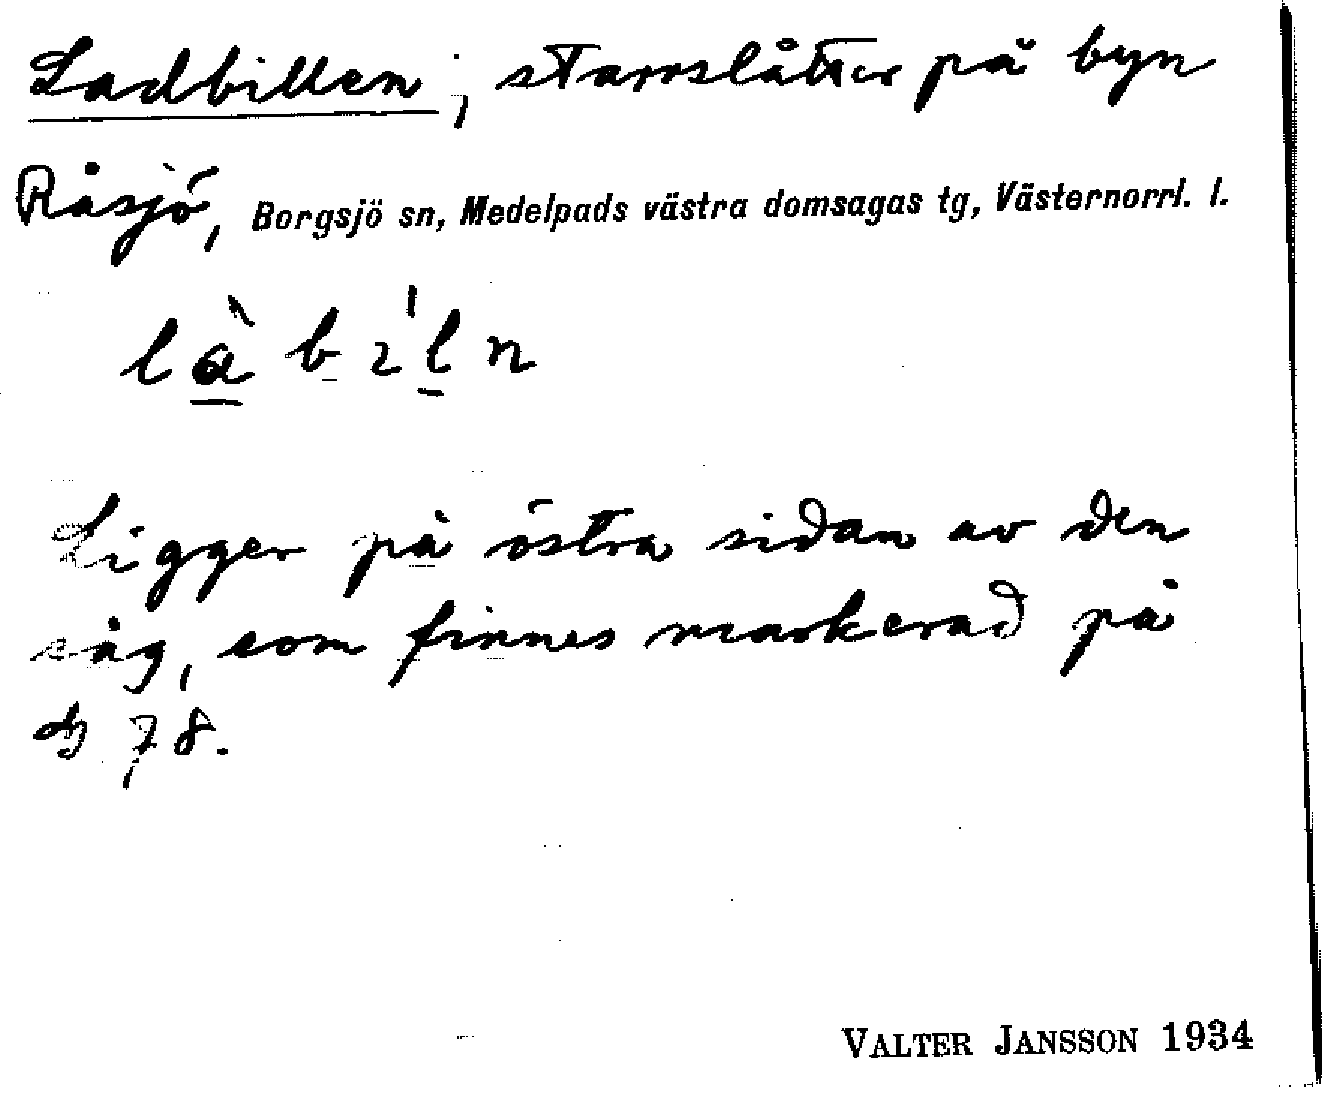 Ladbillen; starrslåtter på byn
Råsjö, Borgsjö sn, Medelpads västra domsagas tg, Västernorrl. l.
là bɩ́ln
Ligger på östra sidan av den
såg, som finnes markerad på
78.
VALTER JANSSON 1934